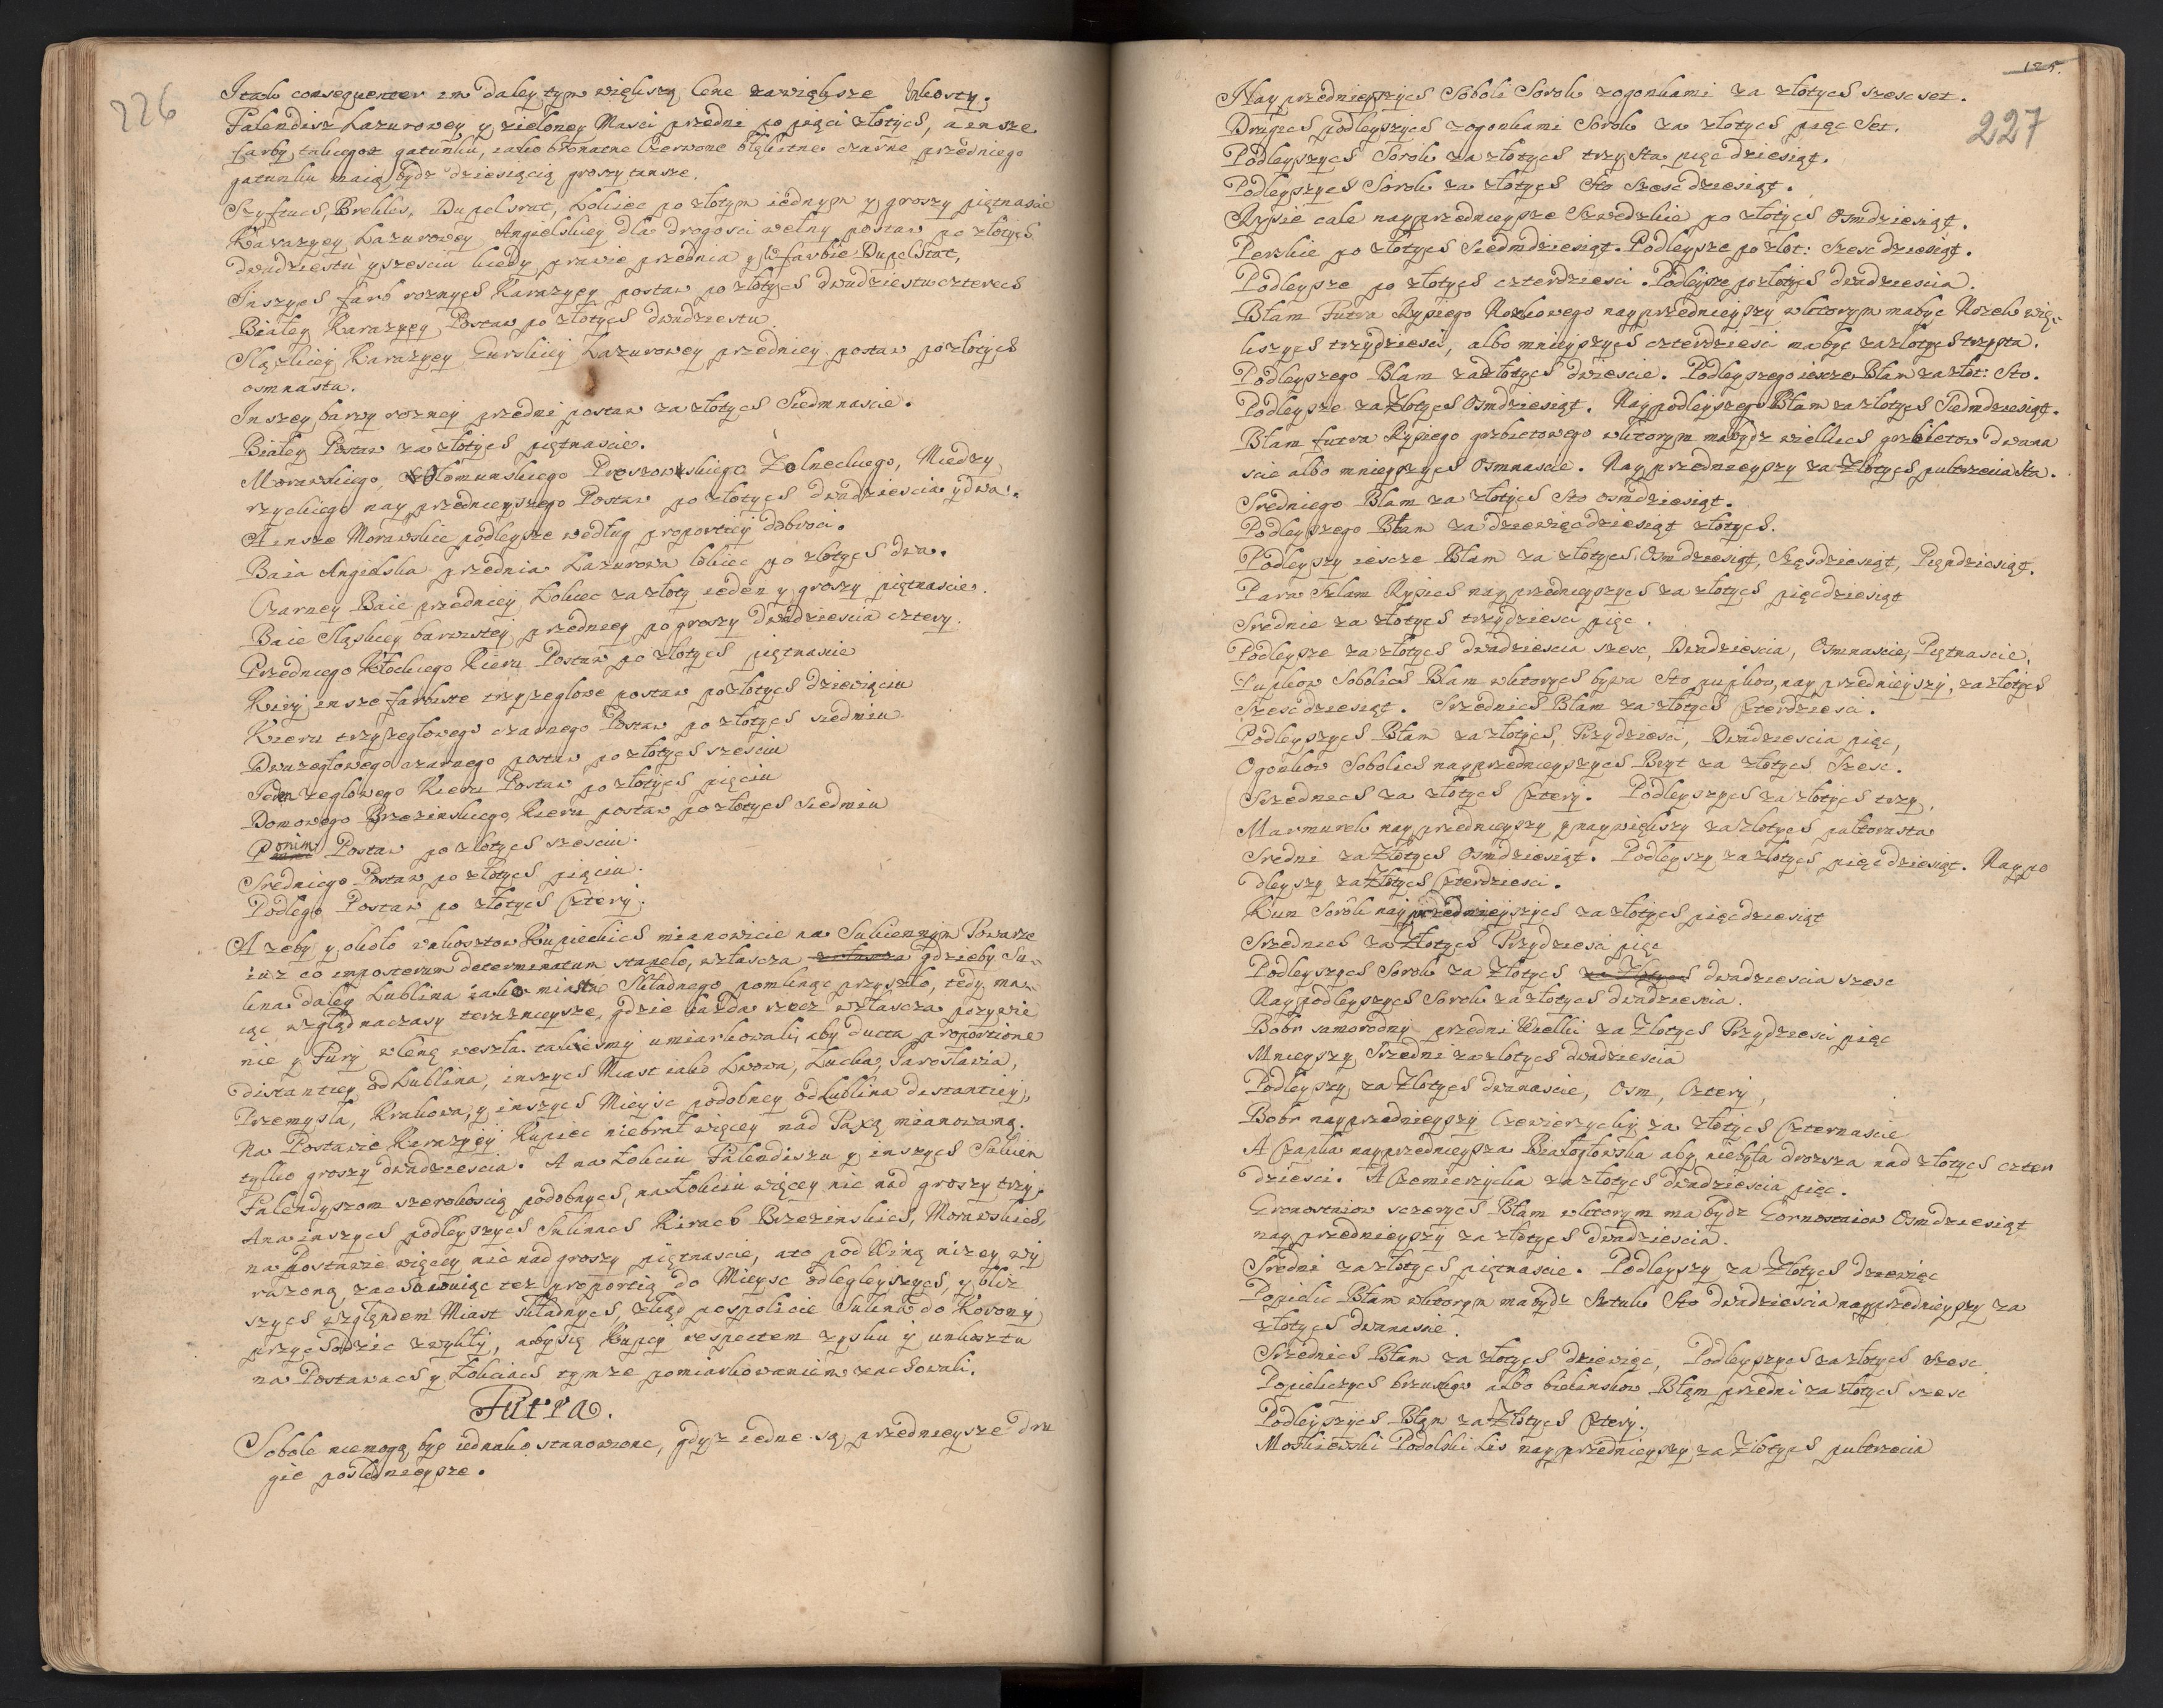 226
Itak consequenter im daley tym większą Cenę za większe Unkoszty.
Falendisz Lazurowey y zieloney Maści przedni po pięci złotych, a insze
farby takiegoż gatunku, iako brunatne Czerwone błękitne czarne przedniego
gatunku maią bydz dziesiącią groszy tansze.
Szyftuch, Brekles, Dupelsrat, Łokiec po złotym iednym y groszy piętnascie
Karazyey Lazurowey Angielskiey dla drogosci wełny postaw po złotych
dwudziestu y szesciu kiedy prawie przednia y w farbie Dupelsrat,
Inszych farb roznych Karazyey postaw po złotych dwudziestu czterech
Białey Karazyey Postaw po złotych dwudziestu
Sląskiey Karazyey Gurskiey Lazurowey przedniey postaw po złotych
osmnastu.
Inszey barwy rozney przedni postaw za złotych Siedmnascie.
Białey Postaw za złotych piętnascie.
Morawskiego, Ołomunskiego Proszowskiego Zolneckiego, Miedzy
rzyckiego nayprzednieyszego Postaw po złotych dwadziescia y dwa.
A insze Morawskie podleysze według proportiey dobroci.
Baia Angielska przednia Lazurowa łokiec po złotych dwa.
Czarney Baie przedniey Łokiec za złoty ieden y groszy piętnascie.
Baie Sląskiey barwistey przedniey po groszy dwadziescia cztery.
Przedniego Kłockiego Kieru Postaw po złotych piętnascie
Kiery insze farbiste trzyzegłowe postaw po złotych dziewiąciu
Kieru trzyzegłowego czarnego Postaw po złotych siedmiu
Dwuzegłowego czarnego postaw po złotych szesciu
Iednzegłowego Kieru Postaw po złotych pięciu
Domowego Brzezinskiego Kieru postaw po złotych Siedmiu
Ponim Postaw po złotych szesciu.
Sredniego Postaw po złotych pięciu.
Podłego Postaw po złotych Cztery.
A zeby y około unkosztow Kupieckich mianowicie na Sukiennym Towarze
iuz co imposterum determinatum stanęło, włascza gdzieby Su-
kna daley Lublina iako miasta Składnego pomknąc przyszło, tedy ma-
iąc wzgląd na czasy teraznieysze, gdzie kazda rzecz włascza pozywie
nie y Fury w Cenę weszła. takesmy umiarkowali, aby ducta proportione
distantiey od Lublina, inszych Miast iako Lwowa, Lucka, Jarosławia,
Przemysla, Krakowa, y inszych Mieysc podobney od Lublina distantiey,
Na Postawie Karazyey Kupiec niebrał więcey nad Taxą mianowaną.
tylko groszy dwadziescia. A na Łokciu Falendiszu y inszych Sukien
Falendyszom szerokoscią podobnych, na Łokciu więcey nic nad groszy trzy.
A na inszych podleyszych Suknach Kirach Brzezinskich, Morawskich,
na postawie więcey nic nad groszy piętnascie, a to pod Winą nizey wy
razoną, zachowuiąc tez proportią do Mieysc odlegleyszych, y bliz
szych względem Miast składnych, zkąd pospolicie Sukna do Korony
przychodzic zwykły, aby się Kupcy respectem zysku y unkosztu
na Postawach y Łokciach tymze pomiarkowaniem zachowali.
Futra.
Sobole niemogą byc iednako stanowione, gdyz iedne są przednieysze dru
gie poslednieysze.
125.
227
Nayprzednieyszych Soboli Sorok z ogonkami za złotych szescset.
Drugich podleyszych z ogonkami Sorok za złotych pięc Set.
Podleyszych Sorok za złotych trzysta pięcdziesiąt.
Podleyszych Sorok za złotych Sto Szescdziesiąt.
Rysie całe nayprzednieysze Szwedzkie po złotych osmdziesiąt.
Perskie po złotych Siedmdziesiąt. Podleysze po złot: Szescdziesiąt.
Podleysze po złotych czterdziesci. Podleysze po złotych dwadziescia.
Błam Futra Rysiego Nozkowego nayprzednieyszy w ktorym ma byc Nozek wię-
kszych trzydziesci, albo mnieyszych czterdziesci ma byc za złotych trzysta.
Podleyszego Błam za złotych dwiescie. Podleyszego iescze Błam za złot: Sto.
Podleysze za złotych Osmdziesiąt. Naypodleyszego Błam za złotych Siedmdziesiąt.
Błam futra Rysiego grzbietowego w ktorym ma bydz wielkich grzbietow dwana
scie albo mnieyszych Osmnascie. Nayprzednieyszy za Złotych pułtrzecia Sta.
Sredniego Błam za złotych Sto osmdziesiąt.
Podleyszego Błam za dziewięcdziesiąt złotych.
Podleyszy iescze Błam za złotych Osmdziesiąt, Szęsdziesiąt, Pięndziesiąt.
Para Szlam Rysich nayprzednieyszych za złotych pięcdziesiąt
Srednie za złotych trzydziesci pięc.
Podleysze za złotych dwadziescia szesc, Dwadziescia, Osmnascie, Piętnascie.
Pupkow Sobolich Błam w ktorych bywa Sto pupkow, nayprzednieyszy, za złotych
Szescdziesiąt. Srzednich Błam za złotych Czterdziesci.
Podleyszych Błam za złotych, Trzydziesci, Dwadziescia pięc,
Ogonkow Sobolich nayprzednieyszych Bryt za złotych Szesc.
Srzednich za złotych Cztery. Podleyszych za złotych trzy.
Marmurek nayprzednieyszy y naywiększy za złotych pułtorasta
Sredni za Złotych Osmdziesiąt. Podleyszy za złotych pięcdziesiąt. Naypo
dleyszy za Złotych Czterdziesci.
Kun Sorok nayprzednieyszych za złotych pięcdziesiąt
Srzednich za Złotych Trzydziesci pięc
Podleyszych Sorok za Złotych za Złotych dwadziescia szesc
Naypodleyszych Sorok za złotych dwadziescia.
Bobr samorodny przedni Wielki za Złotych Trzydziesci pięc
Mnieyszy Srzedni za złotych dwadziescia
Podleyszy za Złotych dwanascie, Osm, Cztery,
Bobr nayprzednieyszy Czewierzycky za złotych Czternascie
A Czapka nayprzednieysza Białogłowska aby niebyła drozsza nad złotych czter
dziesci. A Czemierzycka za złotych dwadziescia pięc.
Gronostaiow sczerych Błam w ktorym ma bydz Gornostaiow Osmdziesiąt
nayprzednieyszy za złotych dwadziescia.
Sredni za złotych piętnascie. Podleyszy za Złotych dziewięc
Popielic Błam w ktorym ma bydz Sztuk Sto dwadziescia nayprzednieyszy za
złotych dwanascie.
Srzednich Błam za złotych dziewięc, Podleyszych za złotych szesc
Popieliczych brzuszkow albo bielinskow Błąm przedni za złotych szesc
Podleyszych Błąm za Złotych Cztery.
Moskiewski Podolski Lis nayprzednieyszy za Złotych pułtrzecia